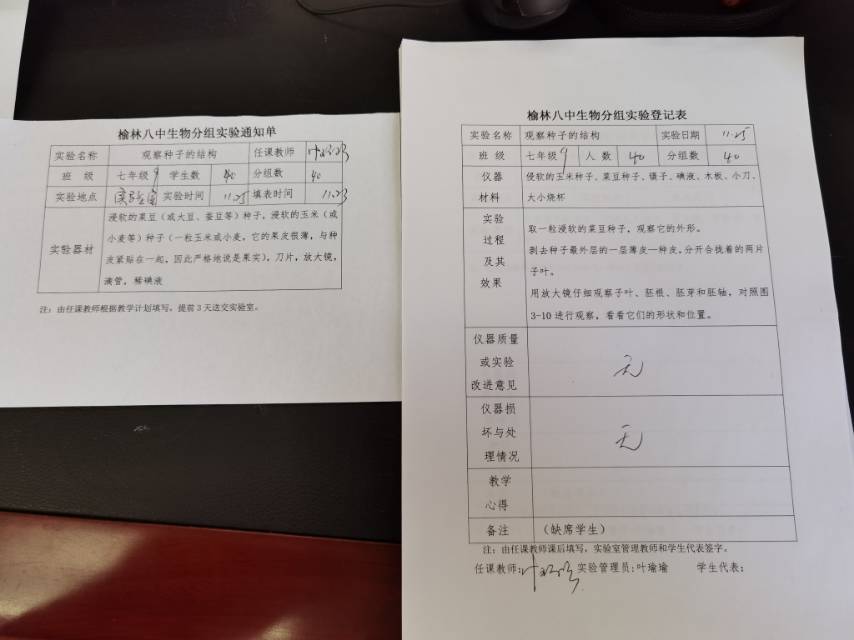 榆林八中生物分组实验通知单
实验名称 观察种子的结构 任课教师
班 级 七年级9 学生数 40 分组数 40
实验地点 实验室 实验时间 11.25 填表时间 11.23
实验器材
浸软的菜豆(或大豆、蚕豆等)种子,浸软的玉米(或
小麦等)种子(一粒玉米或小麦,它的果皮很薄,与种
皮紧贴在一起,因此严格地说是果实),刀片,放大镜,
滴管,稀碘液
注:由任课教师根据教学计划填写,提前3天送交实验室。
榆林八中生物分组实验登记表
实验名称 观察种子的结构 实验日期 11.25
班 级 七年级9 人 数 40 分组数 40
仪器
材料
浸软的玉米种子、菜豆种子、镊子、碘液、木板、小刀、
大小烧杯
实验
过程
及其
效果
取一粒浸软的菜豆种子,观察它的外形。
剥去种子最外层的一层薄皮—种皮,分开合拢着的两片
子叶。
用放大镜仔细观察子叶、胚根、胚芽和胚轴,对照图
3-10进行观察,看看它们的形状和位置。
仪器质量
或实验
改进意见
无
仪器损
坏与处
理情况
无
教学
心得
备注 (缺席学生)
注:由任课教师课后填写,实验室管理教师和学生代表签字。
任课教师: 实验管理员:叶瑜瑜 学生代表: